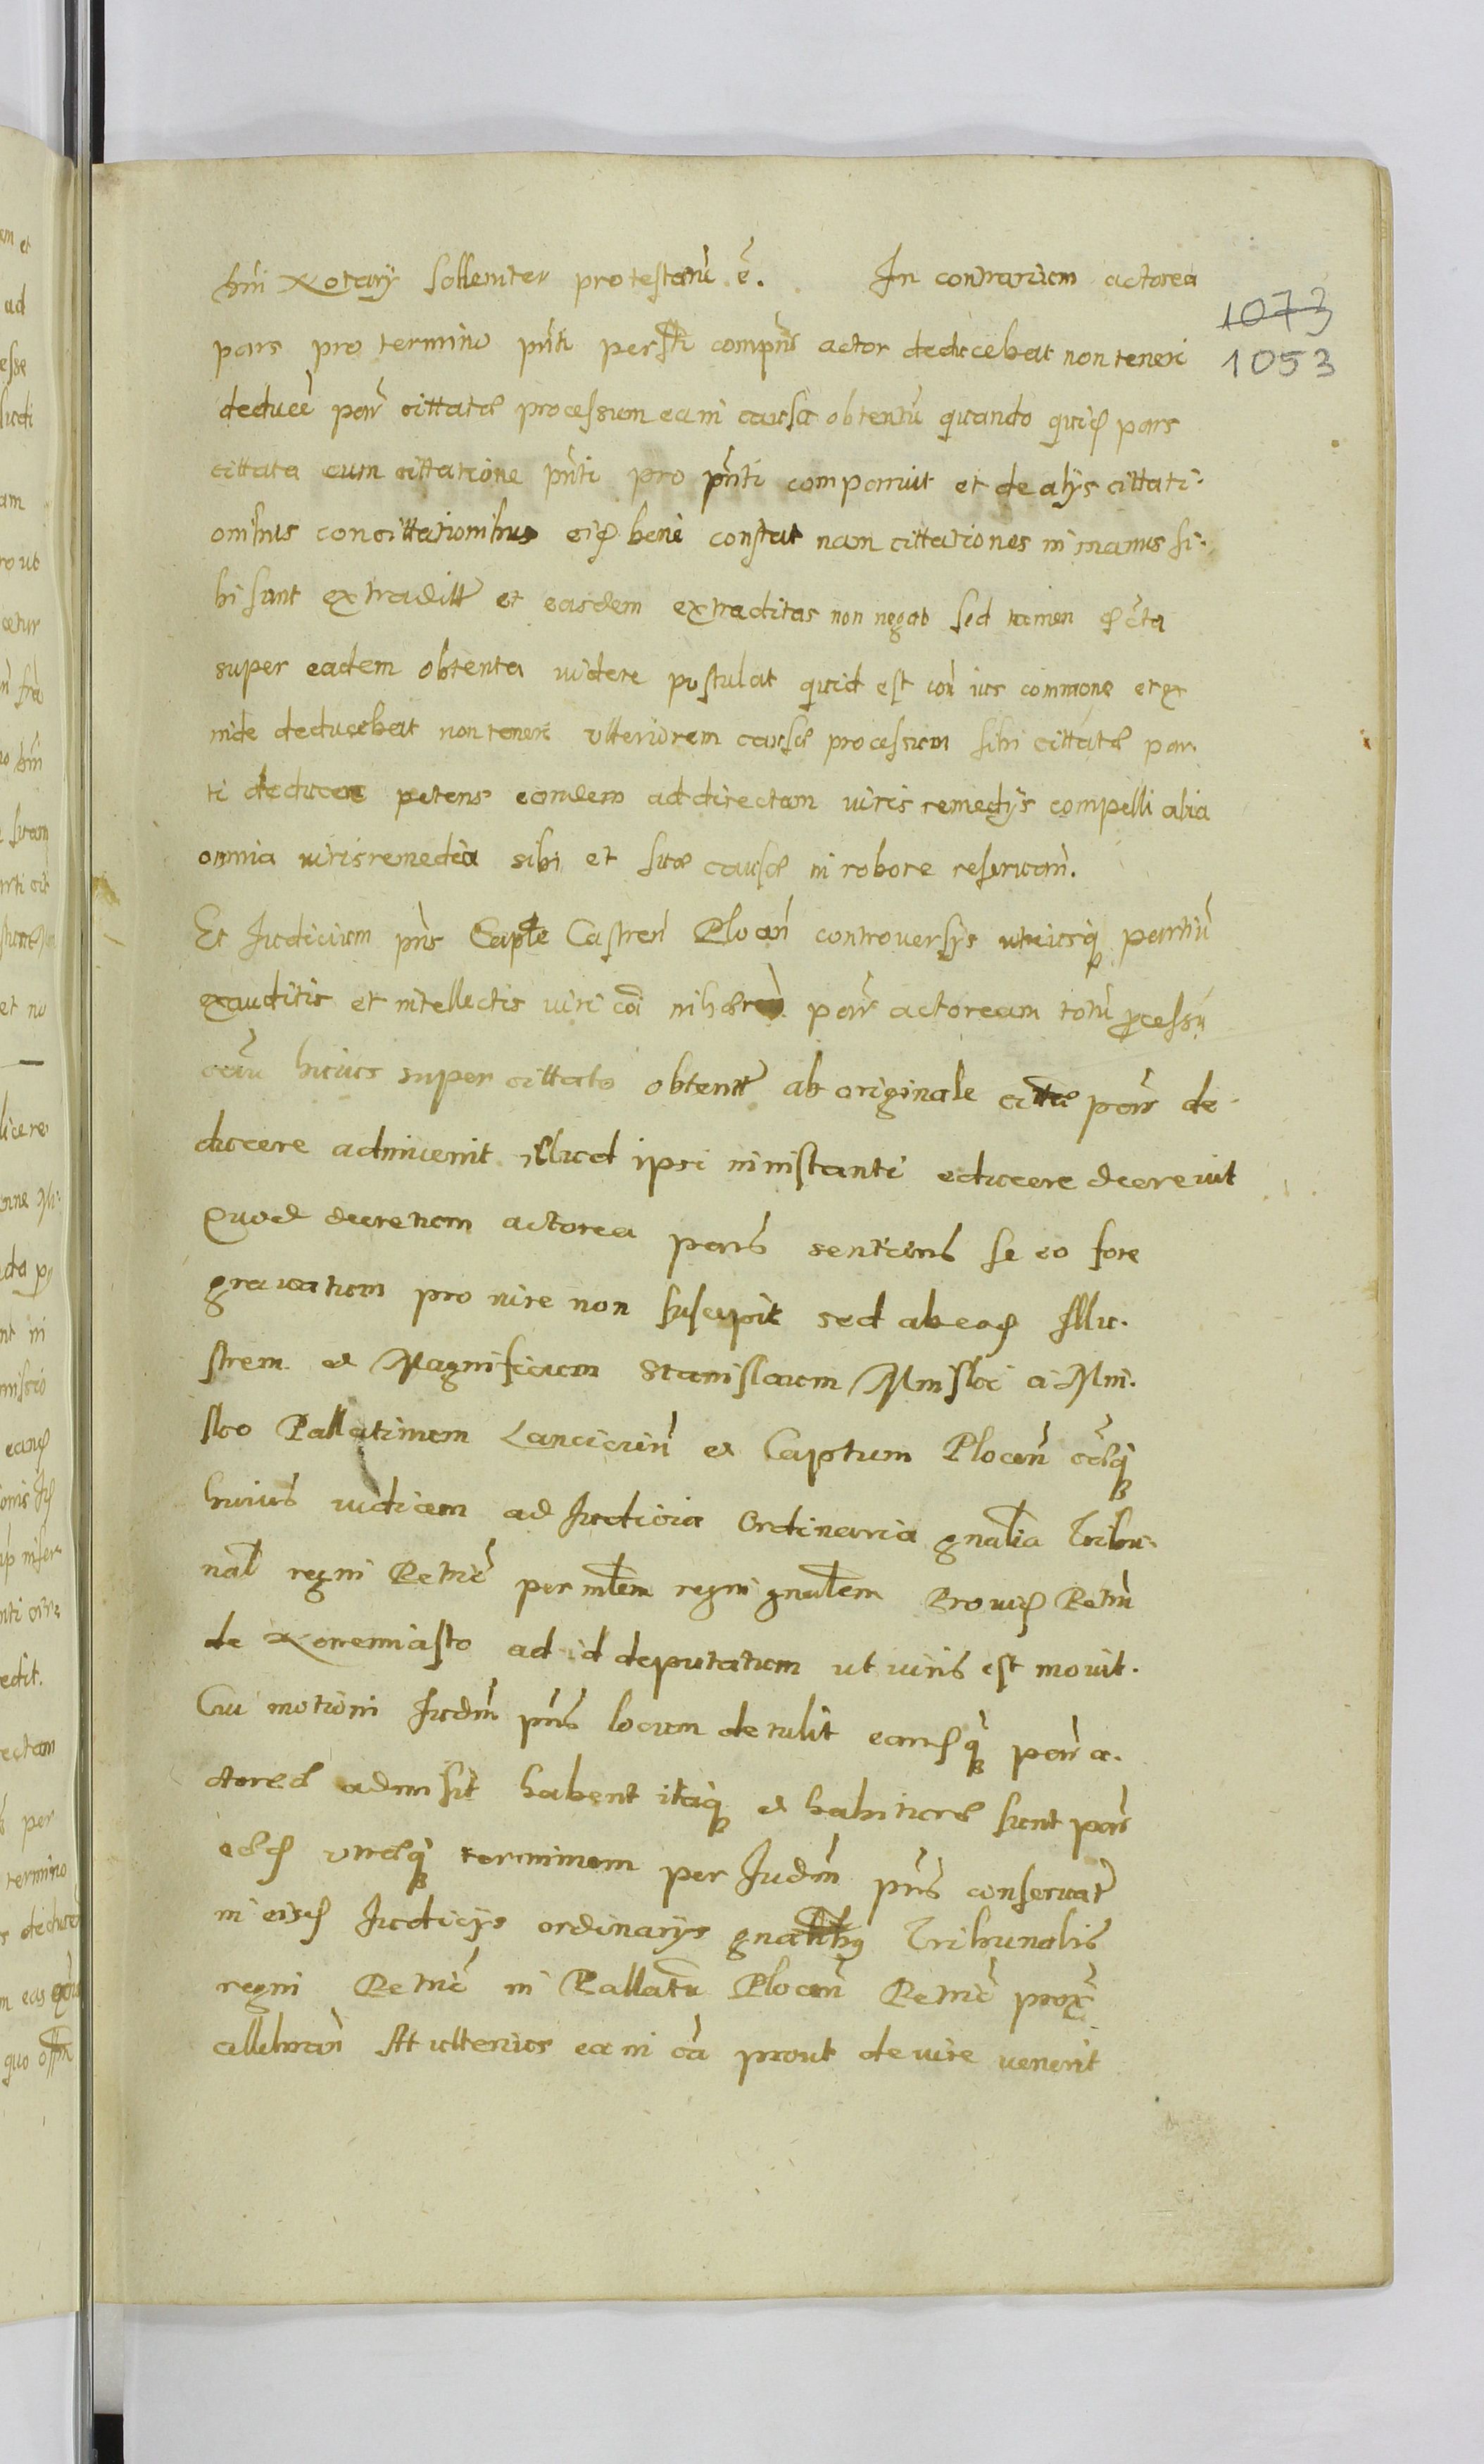 hui Notarÿ sollemniter protestatū ē. In contrarium actorea
1073
pars pro termino pñti persti compñs actor deducebat non teneri
1053
deducē par cittatæ processum ea in causa obtentū quando quid pars
cittata cum cittatione pñti pro pñti comparuit et de alÿs cittati-
onibus concittationibus eid bene constat nam cittationes in manus si-
bi sunt extraditæ et easdem extraditas non negat sed tamen
super eadem obtenta videre postulat quid est con ius commune et ex
inde deducebat non teneri ulteriorem causæ processum sibi cittatæ par-
ti deducere petens eandem ad directam iuris remedÿs compelli alia
omnia iuris remedia sibi et suæ causæ in robore reservam.
Et Iudicium pñs Capłe Castren Plocen controversÿs utriusq partiū
exauditis et intellectis iuri coi inhæren par actoream totū processū
cau huius super cittato obtentū ab originale citta par de-
ducere adinvenit illud ipsi in instanti educere decrevit
Quod decretum actorea pars sentiens se eo fore
gravatum pro iure non suscepit sed ab eod Illu-
strem et Magnificum Stanislaum Minski a Min-
sko Pallatinum Lancicien et Captum Plocen
huius iudicem ad Iudicia Ordinaria gnalia Tribu-
nal regni Petric per mlem regni gnalem Provid Petru
de Konemiasto ad id deputatum ut iuris est movit.
Cui motioni Iudm pñs locum detulit eamq par a-
ctoreā admisit habent itaq et habituræ sunt par
eæd utræq terminum per Iudm pñs conservat
in eisd Iudicÿs ordinarÿs gnalibus Tribunalis
regni Petric in Pallatu Plocen Petric prox
cellebran Et ulterius ea in ca prout de iure venerit